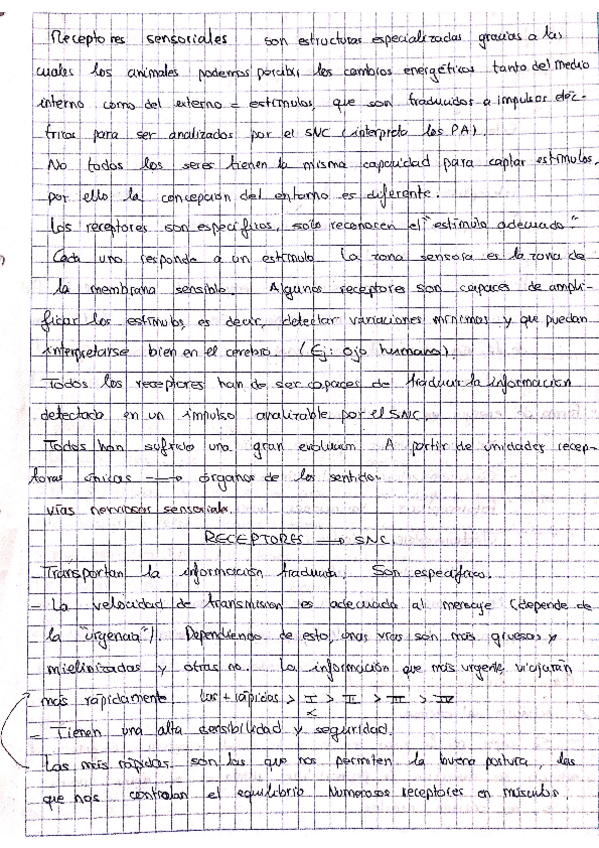 Receptores sensoriales son estructuras especializadas gracias a las
cuales los animales podemos percibir los cambios energéticos tanto del medio
interno como del externo = estímulos, que son traducidos a impulsos eléc-
tricos para ser analizados por el SNC (interpreta los PA).
No todos los seres tienen la misma capacidad para captar estímulos,
por ello la concepción del entorno es diferente.
Los receptores son específicos, sólo reconocen el "estímulo adecuado".
Cada uno responde a un estímulo. La zona sensora es la zona de
la membrana sensible. Algunos receptores son capaces de ampli-
ficar los estímulos, es decir, detectar variaciones mínimas y que puedan
interpretarse bien en el cerebro. (Ej: ojo humano).
Todos los receptores han de ser capaces de traducir la información
detectada en un impulso analizable por el SNC.
Todos han sufrido una gran evolución. A partir de unidades recep-
toras únicas → órganos de los sentidos.
vías nerviosas sensoriales.
RECEPTORES → SNC.
Transportan la información traducida. Son específicas.
- La velocidad de transmisión es adecuada al mensaje (depende de
la "urgencia"). Dependiendo de esto, unas vías son más gruesas y
mielinizadas y otras no. La información que más urgente, viajarán
más rápidamente. Las + rápidas > I > II > III > IV
- Tienen una alta sensibilidad y seguridad.
Las más rápidas son las que nos permiten la buena postura, las
que nos controlan el equilibrio. Numerosos receptores en músculos.